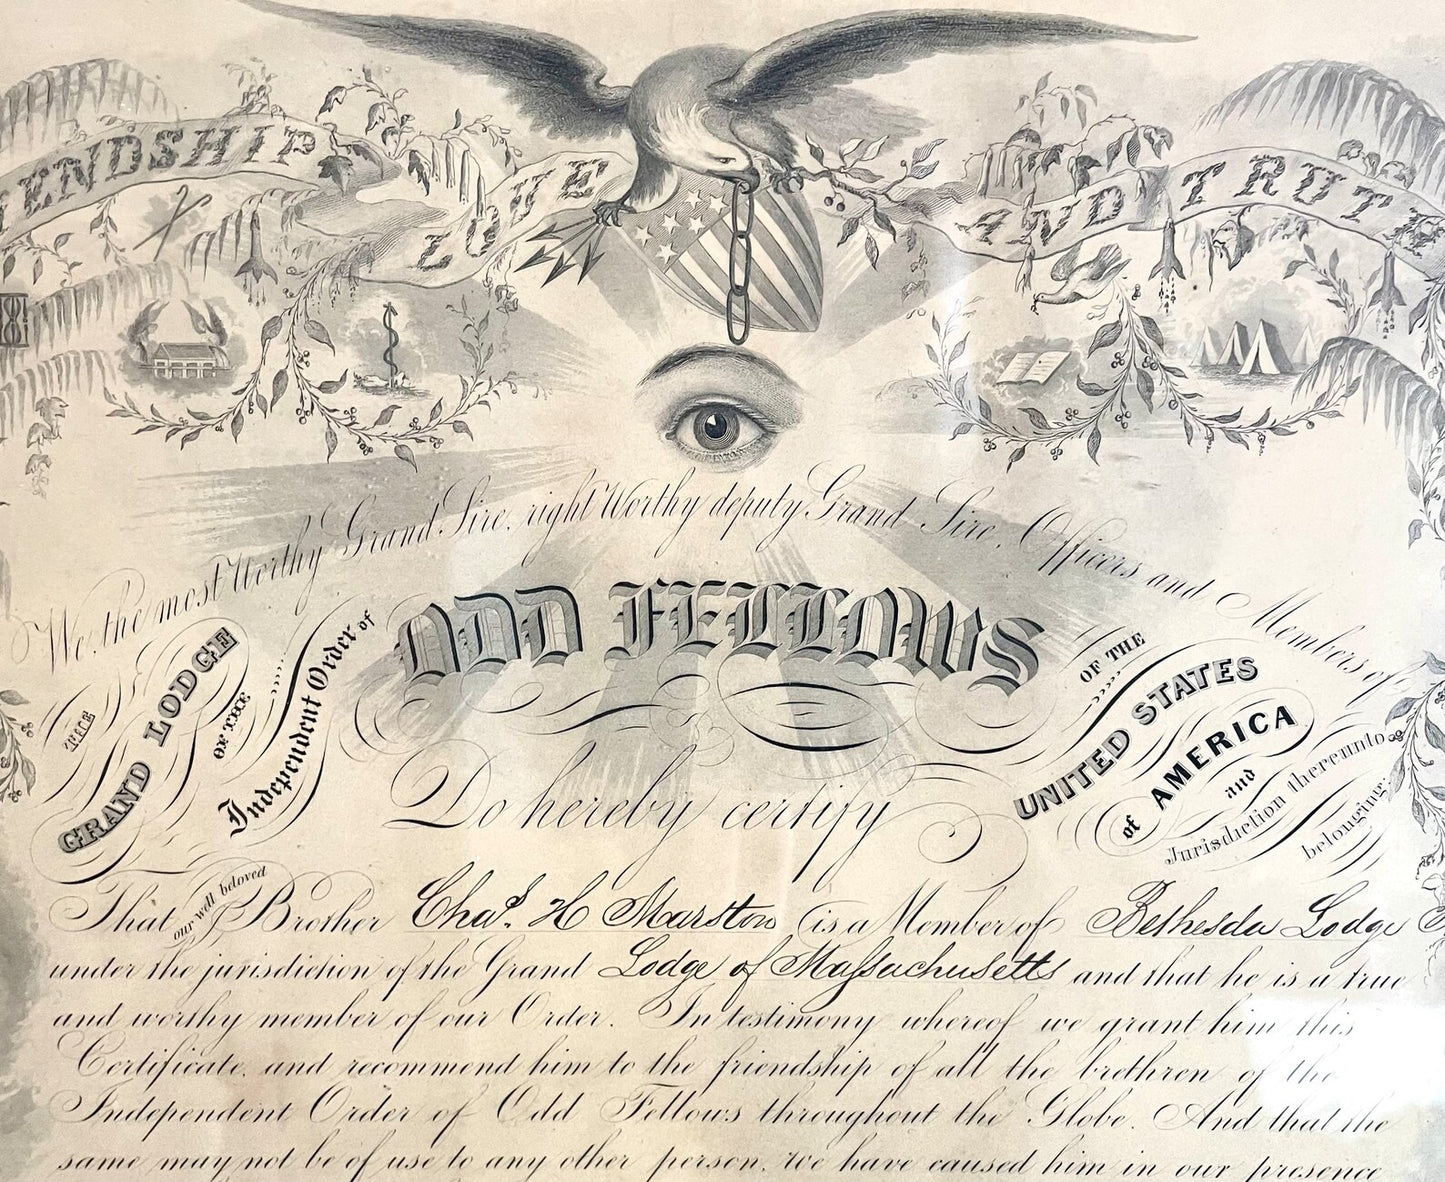 ENDSHIP LOVE AND TRUTH
We, the most Worthy Grand Sire, right Worthy deputy Grand Sire, Officers and Members of
THE
GRAND LODGE
OF THE
Independent Order of
ODD FELLOWS
OF THE
UNITED STATES
of AMERICA
and
Jurisdiction thereunto
belonging.
Do hereby certify
That our well beloved Brother Chas. H Marston is a Member of Bethesda Lodge
under the jurisdiction of the Grand Lodge of Massachusetts and that he is a true
and worthy member of our Order. In testimony whereof we grant him this
Certificate, and recommend him to the friendship of all the brethren of the
Independent Order of Odd Fellows throughout the Globe. And that the
same may not be of use to any other person, we have caused him in our presence